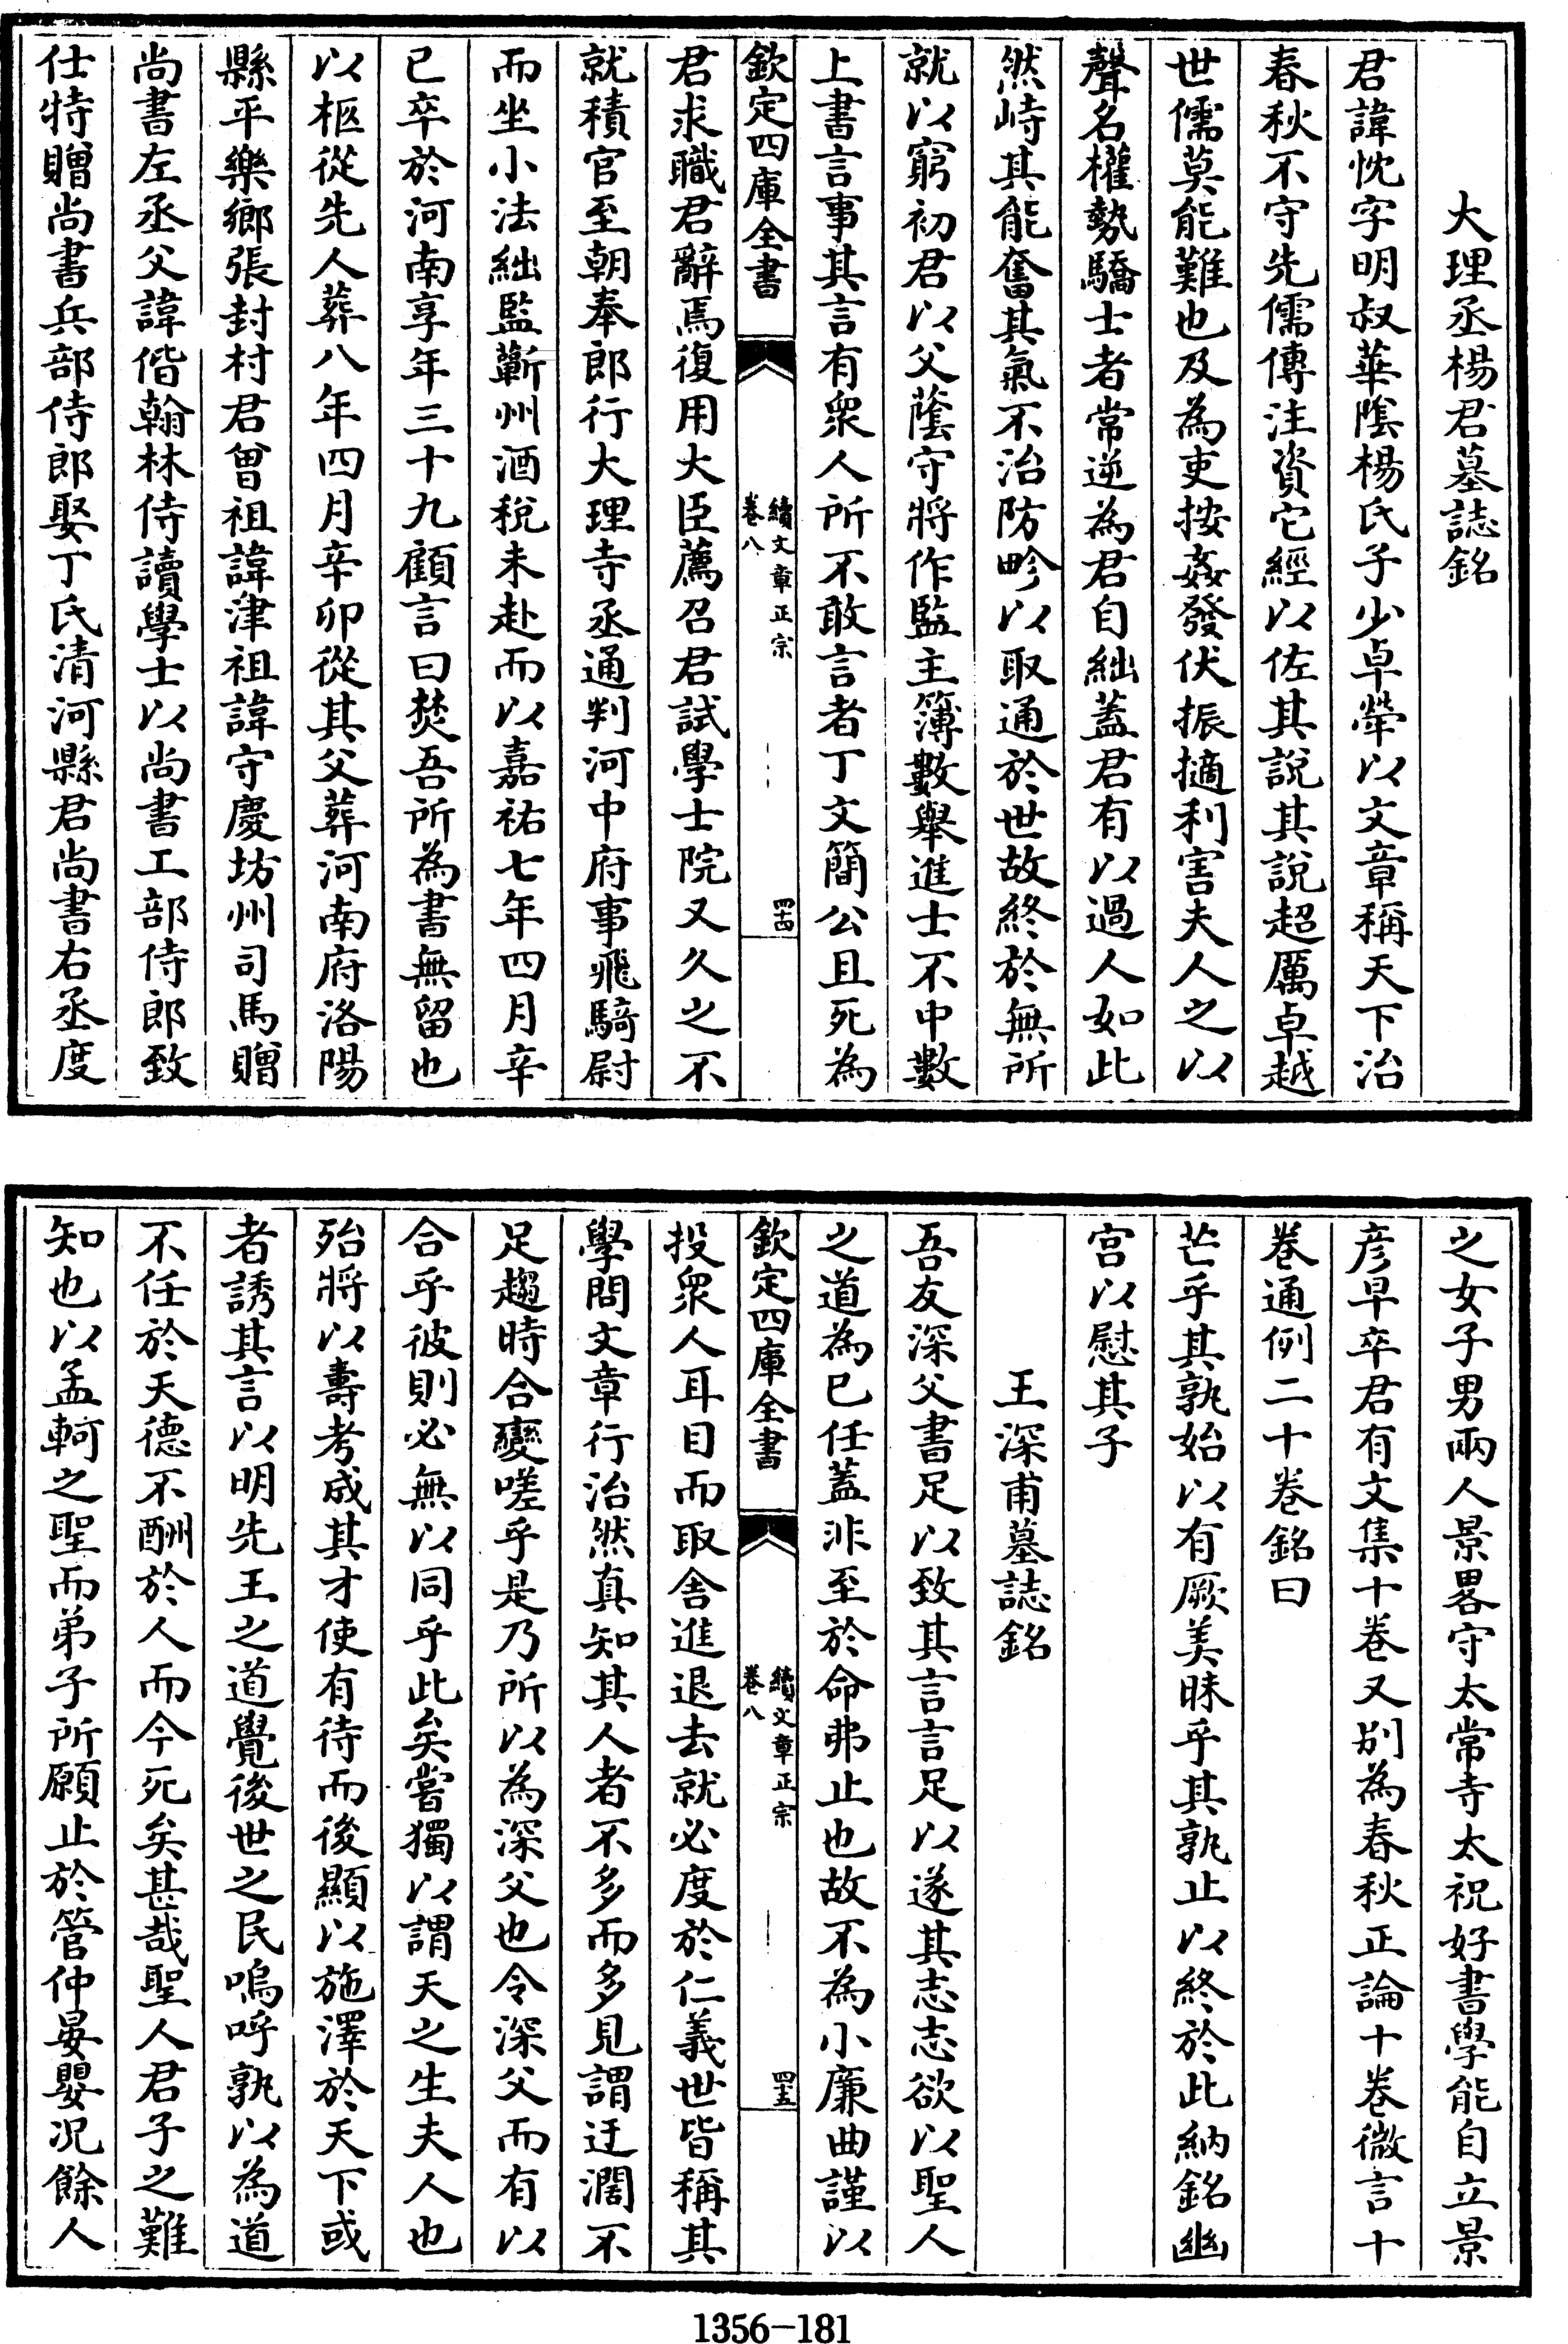 大理丞楊君墓誌銘
君諱忱字明叔華陰楊氏子少卓犖以文章稱天下治
春秋不守先儒傳注資它經以佐其說其說超厲卓越
世儒莫能難也及為吏按姦發伏振擿利害夫人之以
聲名權勢驕士者常逆為君自絀蓋君有以過人如此
然峙其能奮其氣不治防畛以取通於世故終於無所
就以窮初君以父蔭守將作監主簿數舉進士不中數
上書言事其言有衆人所不敢言者丁文簡公且死為
欽定四庫全書
續文章正宗
卷八
四十四
君求職君辭焉復用大臣薦召君試學士院又久之不
就積官至朝奉郎行大理寺丞通判河中府事飛騎尉
而坐小法絀監蘄州酒稅未赴而以嘉祐七年四月辛
已卒於河南享年三十九顧言曰焚吾所為書無留也
以柩從先人葬八年四月辛卯從其父葬河南府洛陽
縣平樂鄉張封村君曾祖諱津祖諱守慶坊州司馬贈
尚書左丞父諱偕翰林侍讀學士以尚書工部侍郎致
仕特贈尚書兵部侍郎娶丁氏清河縣君尚書右丞度
之女子男兩人景畧守太常寺太祝好書學能自立景
彦早卒君有文集十卷又别為春秋正論十卷微言十
卷通例二十卷銘曰
芒乎其孰始以有厥美昧乎其孰止以終於此納銘幽
宫以慰其子
王深甫墓誌銘
吾友深父書足以致其言言足以遂其志志欲以聖人
之道為已任蓋非至於命弗止也故不為小廉曲謹以
欽定四庫全書
續文章正宗
卷八
四十五
投衆人耳目而取舍進退去就必度於仁義世皆稱其
學問文章行治然真知其人者不多而多見謂迂濶不
足趨時合變嗟乎是乃所以為深父也令深父而有以
合乎彼則必無以同乎此矣嘗獨以謂天之生夫人也
殆將以壽考成其才使有待而後顯以施澤於天下或
者誘其言以明先王之道覺後世之民嗚呼孰以為道
不任於天德不酬於人而今死矣甚哉聖人君子之難
知也以孟軻之聖而弟子所願止於管仲晏嬰况餘人
1356-181